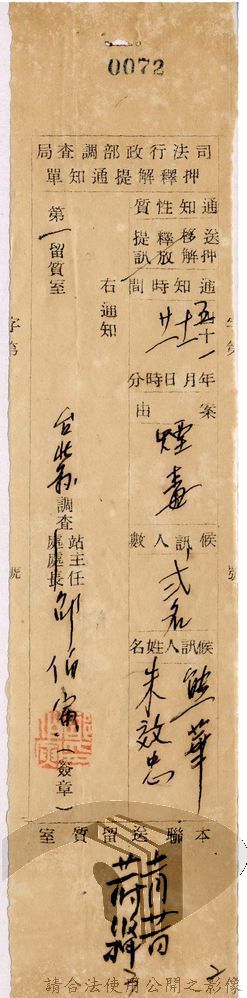 0072
司法行政部調查局
押釋解提通知單
通知性質
送押
移解
釋放
提訊
通知時間
五十一
年月日時分
案由
煙毒
候訊人數
弍名
候訊人姓名
熊華
朱效忠
右通知
第一留質室
台北縣調查
站主任
處處長
邱伯
(簽章)
本聯送留質室
請合法使用公開之影像